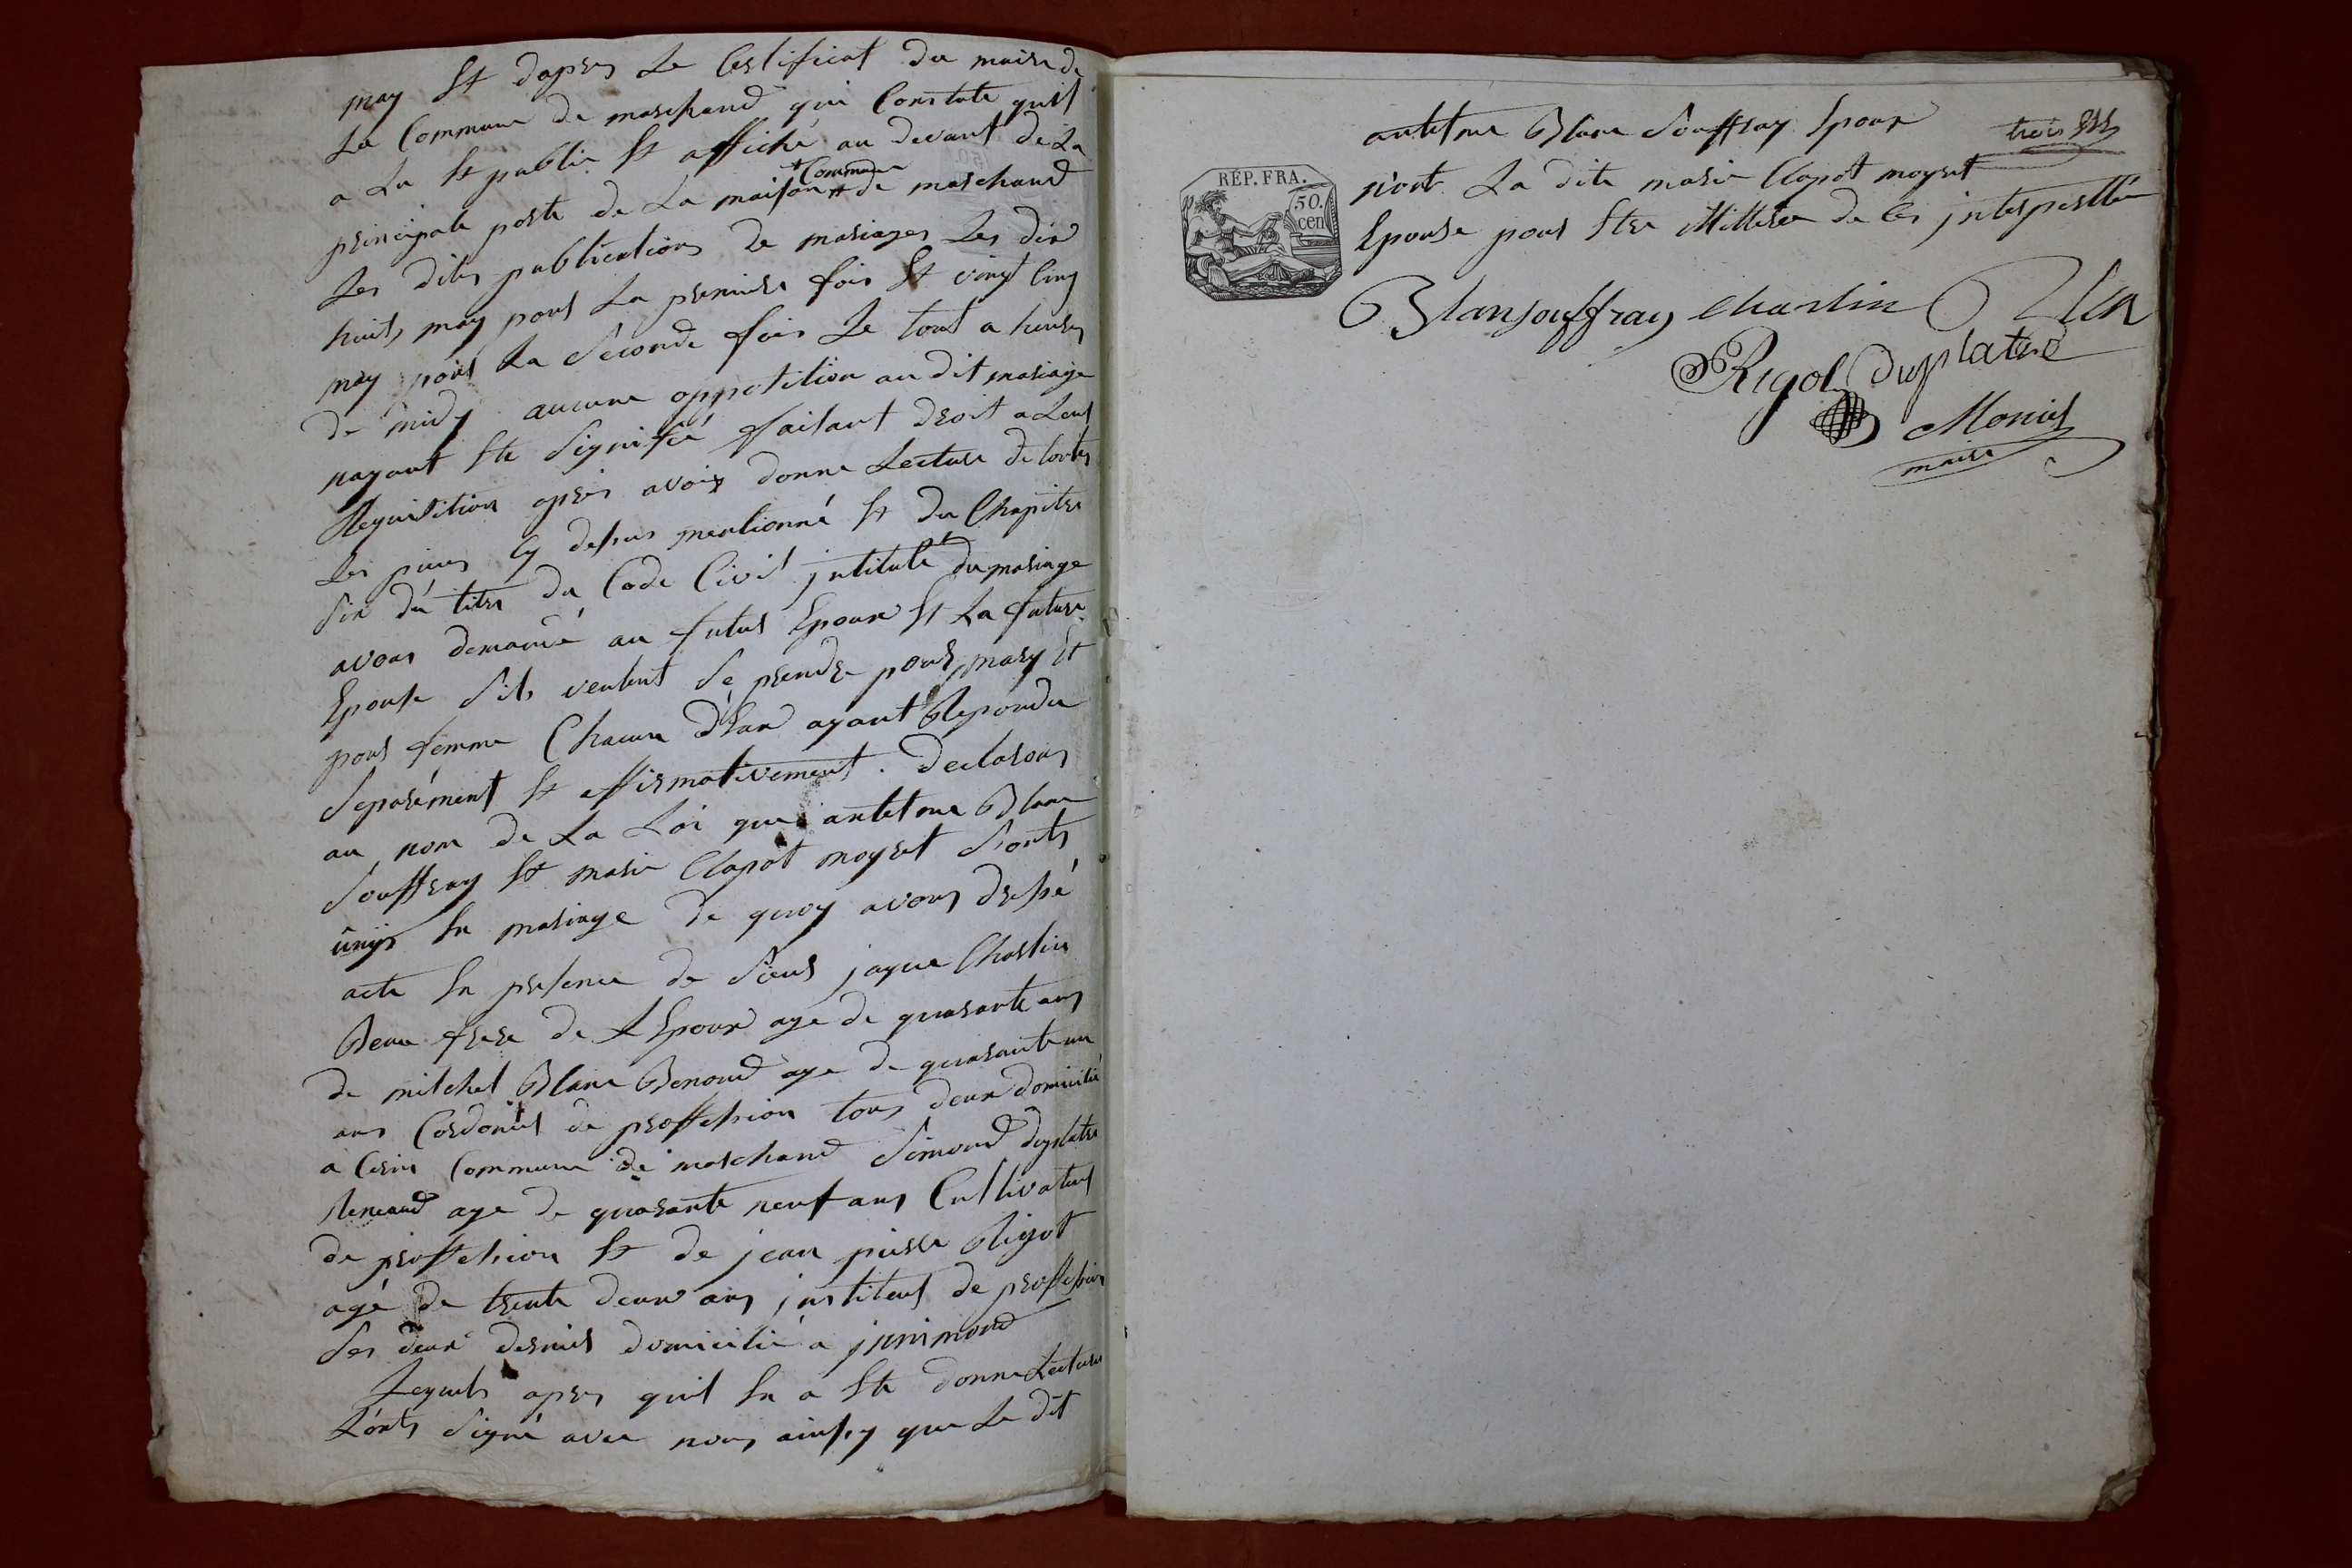 may Et dapres Le Certificat du maire de
La Commune de marchand qui Constate quil
a Lu Et publie Et affiché au devant de La
+ Commune
principale porte de La maison # de marchand
Les dites publications de mariages Les dix
huit may pour La premiere fois Et vingt Cinq
may pour La Seconde fois Le tout a heure
de midy aucune oppotition au dit mariage
nayant Ete Signifié faisant droit a Leur
Requisition apres avoir donne Lecture de toutes
Les pieces Cy dessus mentionné Et du Chapitre
Six du titre du Code Civil jntitulé du mariage
avons demande au futur Epoux Et La future
Epouse Sils veulent Se prendre pour mary Et
pour femme Chacun deux ayant Repondu
Separément Et affirmativement. declarons
au nom de La Loi que antelme Blanc
Souffray Et marie Clapot moyret Sonts
ûnys En mariage de quoy avons dressé
acte En presence de Sieur jaque Charlin
Beau frere de L Epoux age de quarante ans
de mitchel Blanc Benoud age de quarante un
ans Cordonier de proffession tous deux domicilié
a Cerin Commune de marchand Simond duplatre
Reneaud age de quarante neuf ans Cultivateur
de proffession Et de jean pierre Rigot
agé de trente deux ans jnstiteur de proffession
Les deux dernier domicilié a jnnimond
Lequels apres quil En a Ete donne Lecture
Lonts Signé avec nous ainsy que Le dit
antelme Blanc Souffray Epoux
trois
RÉP. FRA.
50.
cen
non La dite marie Clapot moyret
Epouse pour Etre Illiteree de Ces jnterpellée
Blansouffray charlin
Rigot duplatre
Monier
maire